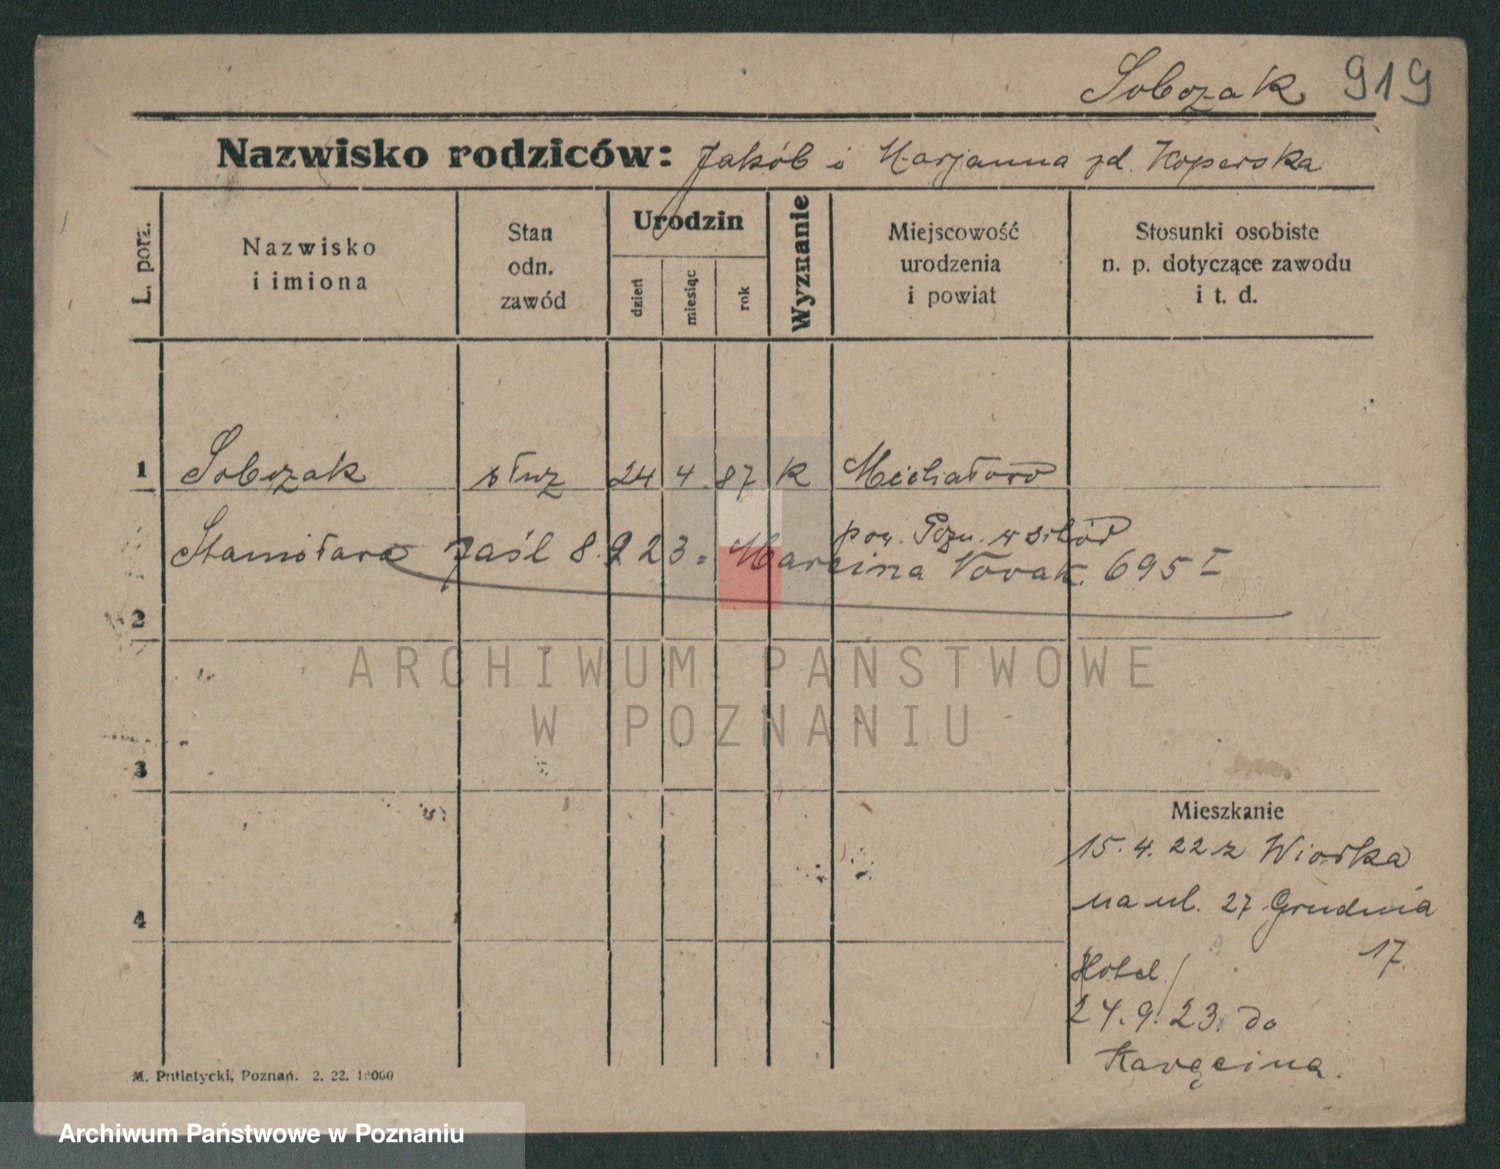 Sobczak 919
Nazwisko rodziców: Jakób i Marjanna zd. Koperska
L. porz.
Nazwisko i imiona
Stan odn. zawód
Urodzin
dzień
miesiąc
rok
Wyznanie
Miejscowość urodzenia i powiat
Stosunki osobiste n. p. dotyczące zawodu i t. d.
1 Sobczak służ 24 4 87 k Michałowo
pow. Pozn. wschód
Stanisława zaśl 8.9 23. Marcina Novak 695 I
2
3
4
Mieszkanie
15.4.22 z Wiorka
na ul. 27 Grudnia
17
Hotel
24.9.23. do
Karęcina.
M. Putiatycki, Poznań. 2. 22. 10000
ARCHIWUM PAŃSTWOWE
W POZNANIU
Archiwum Państwowe w Poznaniu